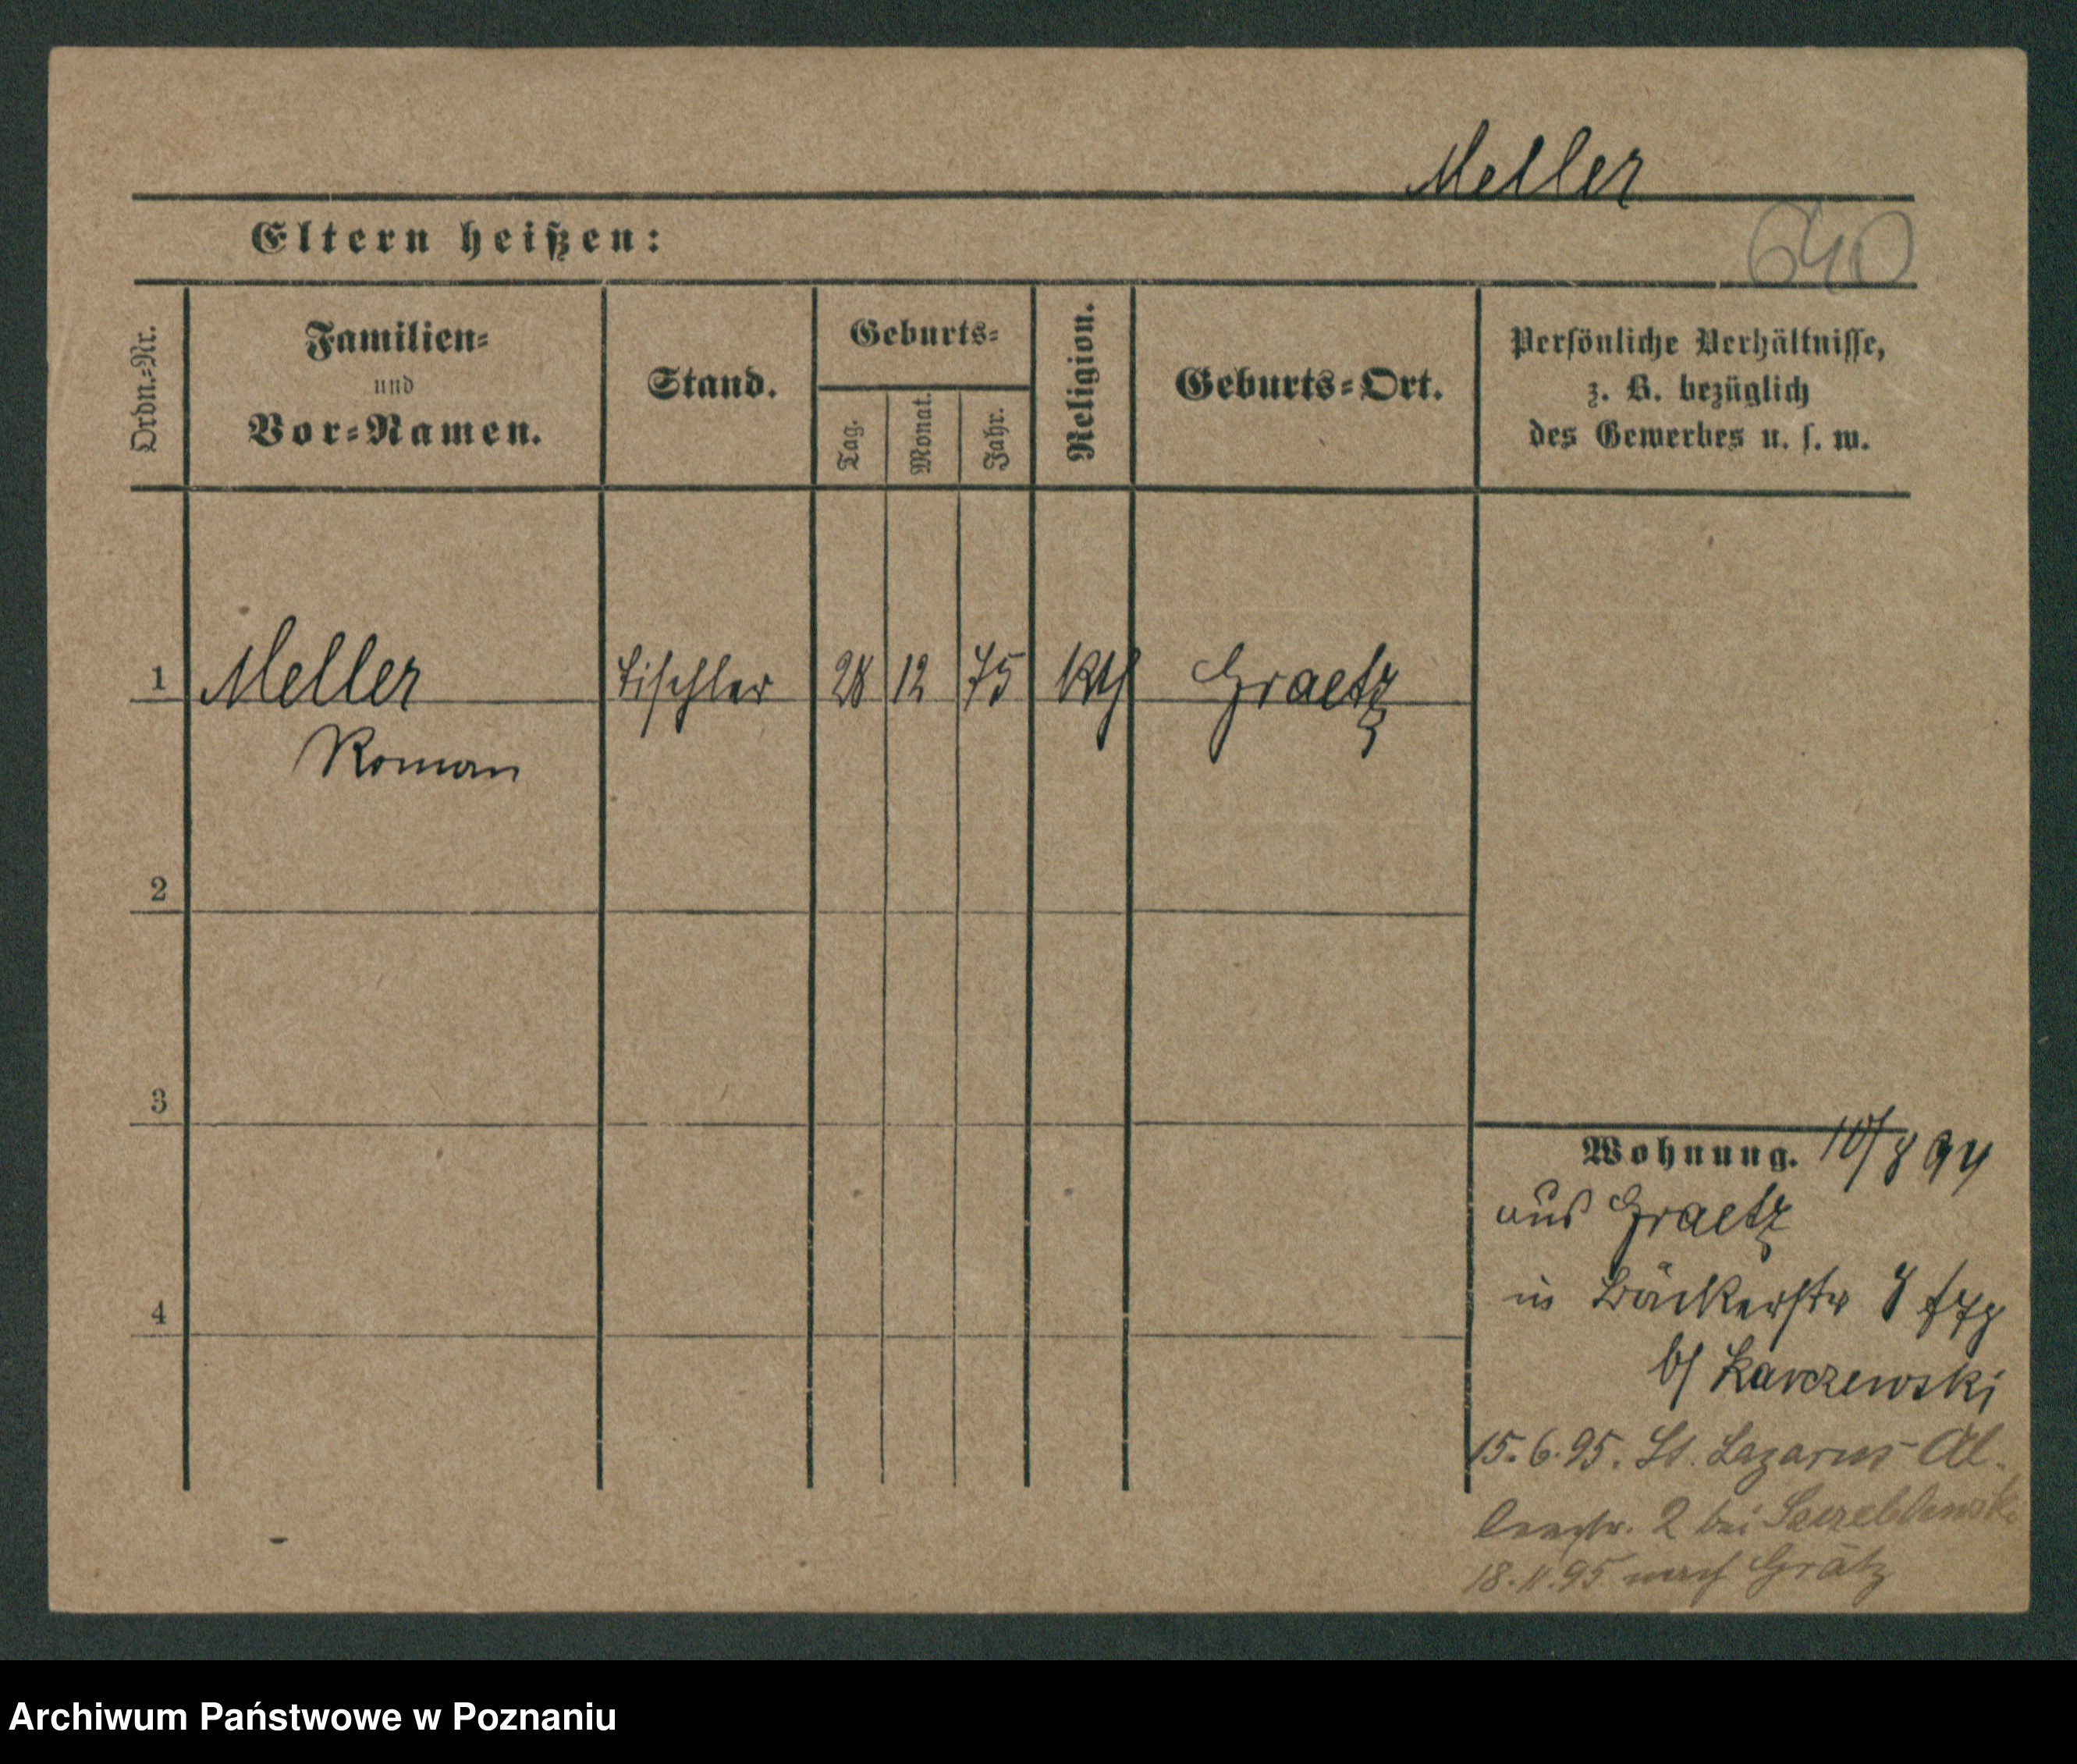 Meller
640
Eltern heißen:
Ordn.-Nr.
Familien-
und
Vor-Namen.
Stand.
Geburts-
Tag.
Monat.
Jahr.
Religion.
Geburts-Ort.
Persönliche Verhältnisse,
z. B. bezüglich
des Gewerbes u. s. w.
1 Meller Tischler 28 12 75 kth Graetz
Roman
2
3
4
Wohnung. 10/8 94
aus Graetz
in Bäckerstr
b/ Karczewski
15.6.95. St. Lazarus-
2 bei
18.11.95 nach Grätz
Archiwum Państwowe w Poznaniu